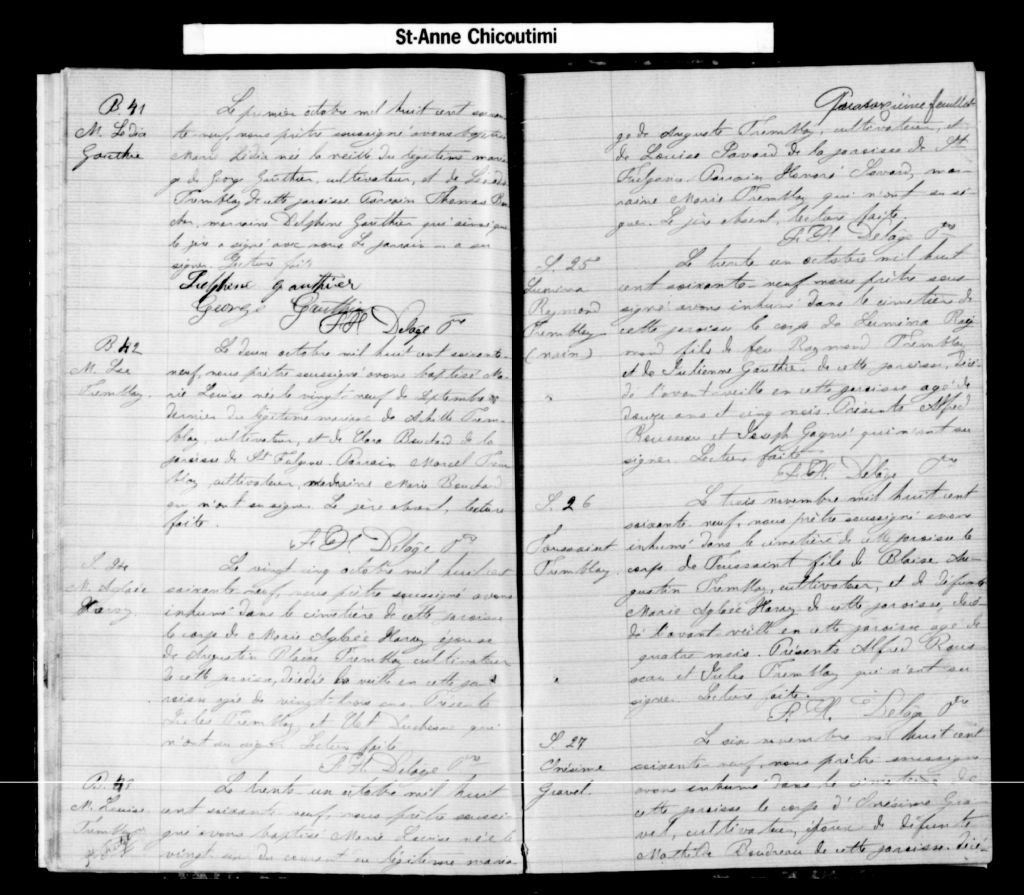 St-Anne Chicoutimi
B. 41
M. Lédia
Gauthier
Le premier octobre mil huit cent soixan
te neuf, nous prêtre soussigné avons baptisé
Marie Lédia née la veille du légitime maria
ge de George Gauthier, cultivateur, et de
Tremblay de cette paroisse Parrain Thomas Bou
cher, marraine Delphine Gauthier qui ainsi que
le père a signé avec nous Le parrain n a su
signer. Lecture faite
Delphene Gauthier
George Gauthier
F. H Delâge Ptre
B. 42
M. Lse
Tremblay.
Le deux octobre mil huit cent soixante-
neuf, nous prêtre soussigné avons baptisé Ma-
rie Louise née le vingt neuf de Septembre
dernier du légitime mariage de Achille Trem-
blay, cultivateur, et de Clara Bouchard de la
paroisse de St Fulgence. Parrain Marcel Trem
blay, cultivateur, marraine Marie Bouchard
qui n'ont su signer. Le père absent, lecture
faite.
F. H. Delâge Ptre
S. 24
M. Aglaée
Harvy
Le vingt cinq octobre mil huit cent
soixante neuf, nous prêtre soussigné avons
inhumé dans le cimetière de cette paroisse
le corps de Marie Aglaée Harvy épouse
de Augustin Blaise Tremblay cultivateur
de cette paroisse, décédée la veille en cette pa
roisse agée de vingt-trois ans. Présents
Jules Tremblay et Duchesne qui
n'ont su signer Lecture faite
F. H. Delâge Ptre
B. 43
M. Louise
Tremblay
Le trente-un octobre mil huit
cent soixante-neuf, nous prêtre soussi
gné avons baptisé Marie Louise née le
vingt un du courant du légitime maria
Quatorzième feuillet
ge de Auguste Tremblay, cultivateur, et
de Louise Savard de la paroisse de St
Fulgence Parrain Honoré Savard, mar-
raine Marie Tremblay qui n'ont su si-
gner. Le père absent, lecture faite.
F. H. Delâge Ptre
S. 25
Lumina
Raymond
Tremblay
(nain)
Le trente un octobre mil huit
cent soixante-neuf nous prêtre sous-
signé avons inhumé dans le cimetière de
cette paroisse le corps de Lumina Ray
mond fils de feu Raymond Tremblay
et de Julienne Gauthier de cette paroisse, décé-
dé l'avant veille en cette paroisse agé de
douze ans et cinq mois. Présents Alfred
Rousseau et Joseph Gagné qui n'ont su
signer Lecture faite
F. H. Delâge Ptre
S. 26
Toussaint
Tremblay.
Le trois novembre mil huit cent
soixante neuf, nous prêtre soussigné avons
inhumé dans le cimetière de cette paroisse le
corps de Toussaint fils de Blaise Au-
gustin Tremblay, cultivateur, et de défunte
Marie Aglaée Harvy de cette paroisse, décé-
dé l'avant-veille en cette paroisse agé de
quatre mois. Présents Alfred Rous-
seau et Jules Tremblay qui n'ont su
signer Lecture faite.
F. H. Delâge Ptre
S. 27
Onésime
Gravel.
Le six novembre mil huit cent
soixante-neuf, nous prêtre soussigné
avons inhumé dans le cimetière de
cette paroisse le corps d'Onésime Gra
vel, cultivateur, époux de défunte
Mathilde Boudreau de cette paroisse, décé-